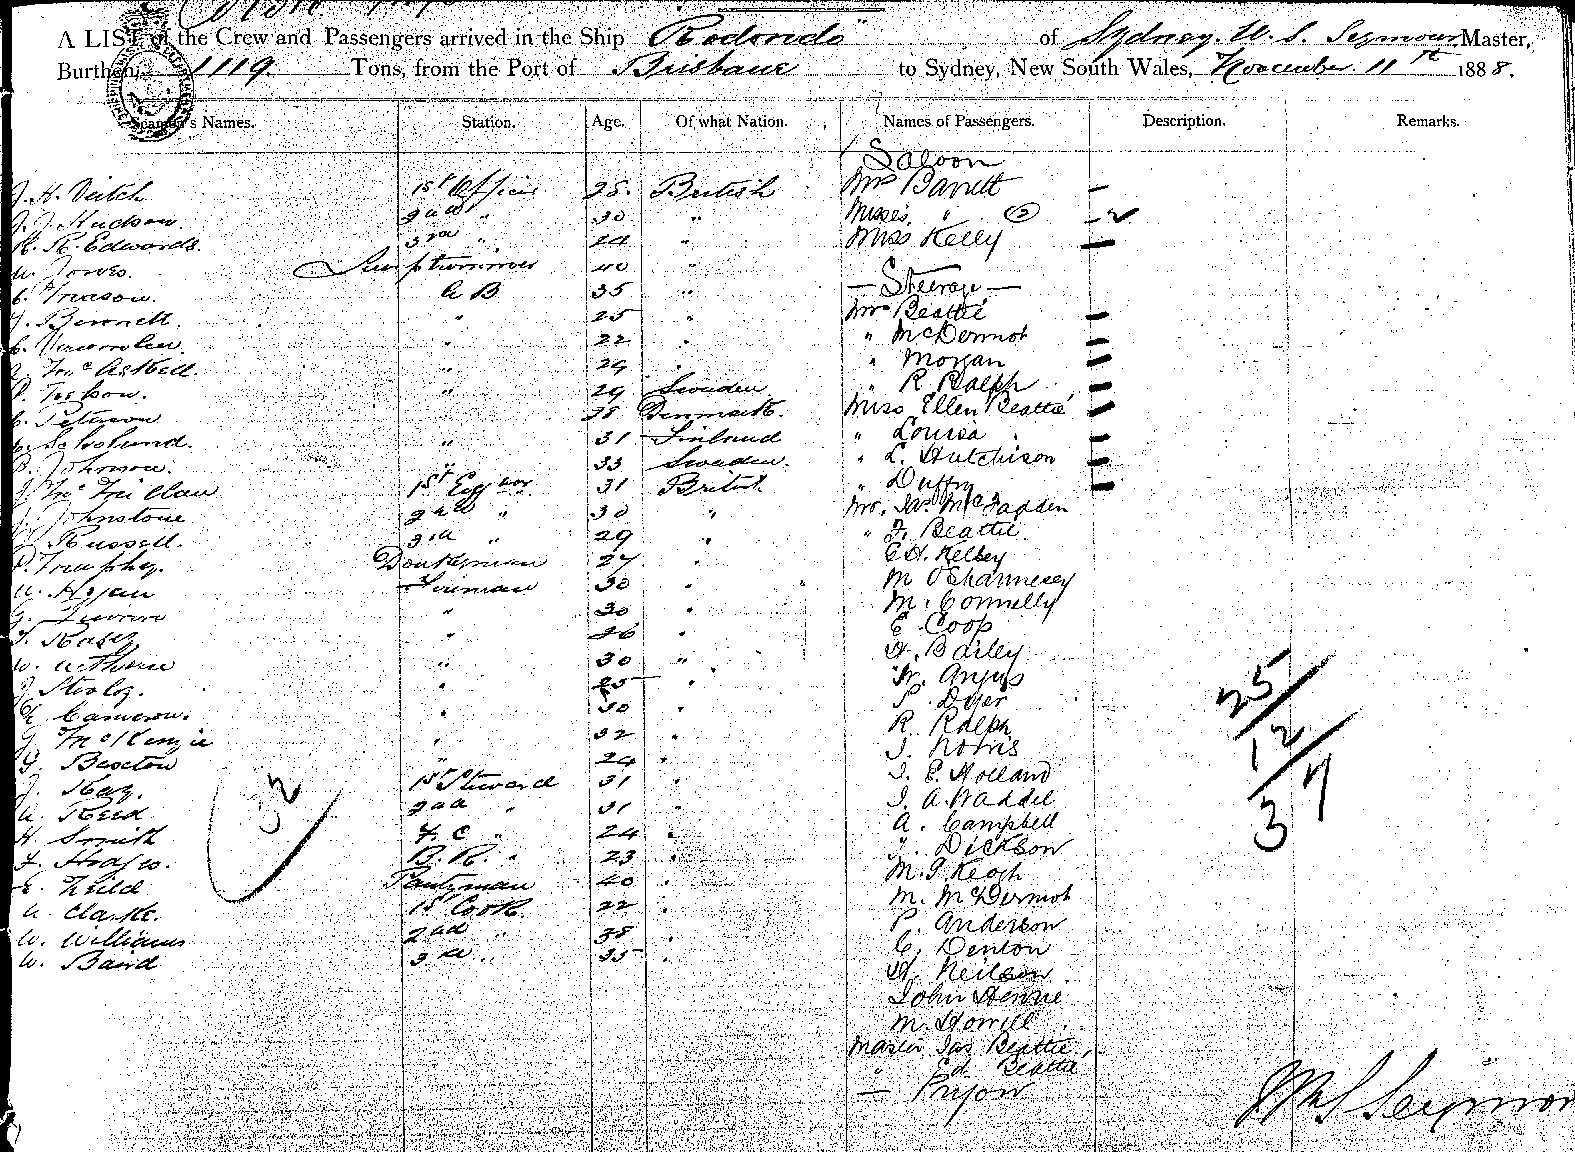 A LIST of the Crew and Passengers arrived in the Ship Rodondo of Sydney. W. S. Seymour Master,
Burthen, 1119. Tons, from the Port of Brisbane to Sydney, New South Wales, November. 11th 1888.
Seamen's Names. Station. Age. Of what Nation. Names of Passengers. Description. Remarks.
Saloon
J. H. Veitch 1st Officer 28. British Mrs Barrett –
J. J. Hudson. 2nd " 30 " Misses " 2 – 2
R. R. Edwards. 3rd " 24 " Miss Kelly –
W. Jones. Lamptrimmer 40 "
A B 35 " — Steerage —
J. Bennett. " 25 " Mrs Beattie –
" 22 " " McDermot –
McAskell. " 24 " " Morgan –
" 29 Sweden " R. Ralph –
C. Peterson " 38 Denmark. Miss Ellen Beattie –
" 31 Finland " Louisa " –
B. Johnson. " 33 Sweden. " L. Hutchison –
J. McMillan 1st Engineer 31 British " Duffy –
J. Johnstone 2nd " 30 " Mr. Jas. McFadden
J. Russell. 3rd " 29 " " J. Beattie.
Donkeyman 27 " E. H. Kelsey
Fireman 30 " M O'Shannesey
" 30 " M. Connelly
" 26 " E. Coop
" 30 " H. Bailey
" 25 " W. Angus
Cameron. " 30 " P. Dyer
J. McKenzie " 32 " R. Ralph
" 24 " J. Norris
J. Kay. 1st Steward 31 " J. E. Holland
A. Reid 2nd " 31 " J. A. Waddel
H. Smith F. C. " 24 " A. Campbell
J. Hodges. B. R. " 23 " J. Dickson
E. Neild Pantryman 40 " M. J. Keogh
A. Clarke. 1st Cook 22 " M. McDermot
W. Williams 2nd " 38 " P. Anderson
W. Baird 3rd " 35 " C. Denton
H. Neilson
John Hennie
M. Howell
Master Jas Beattie,
" Ed. Beattie
— Pryor
32
25
12
37
W S Seymour